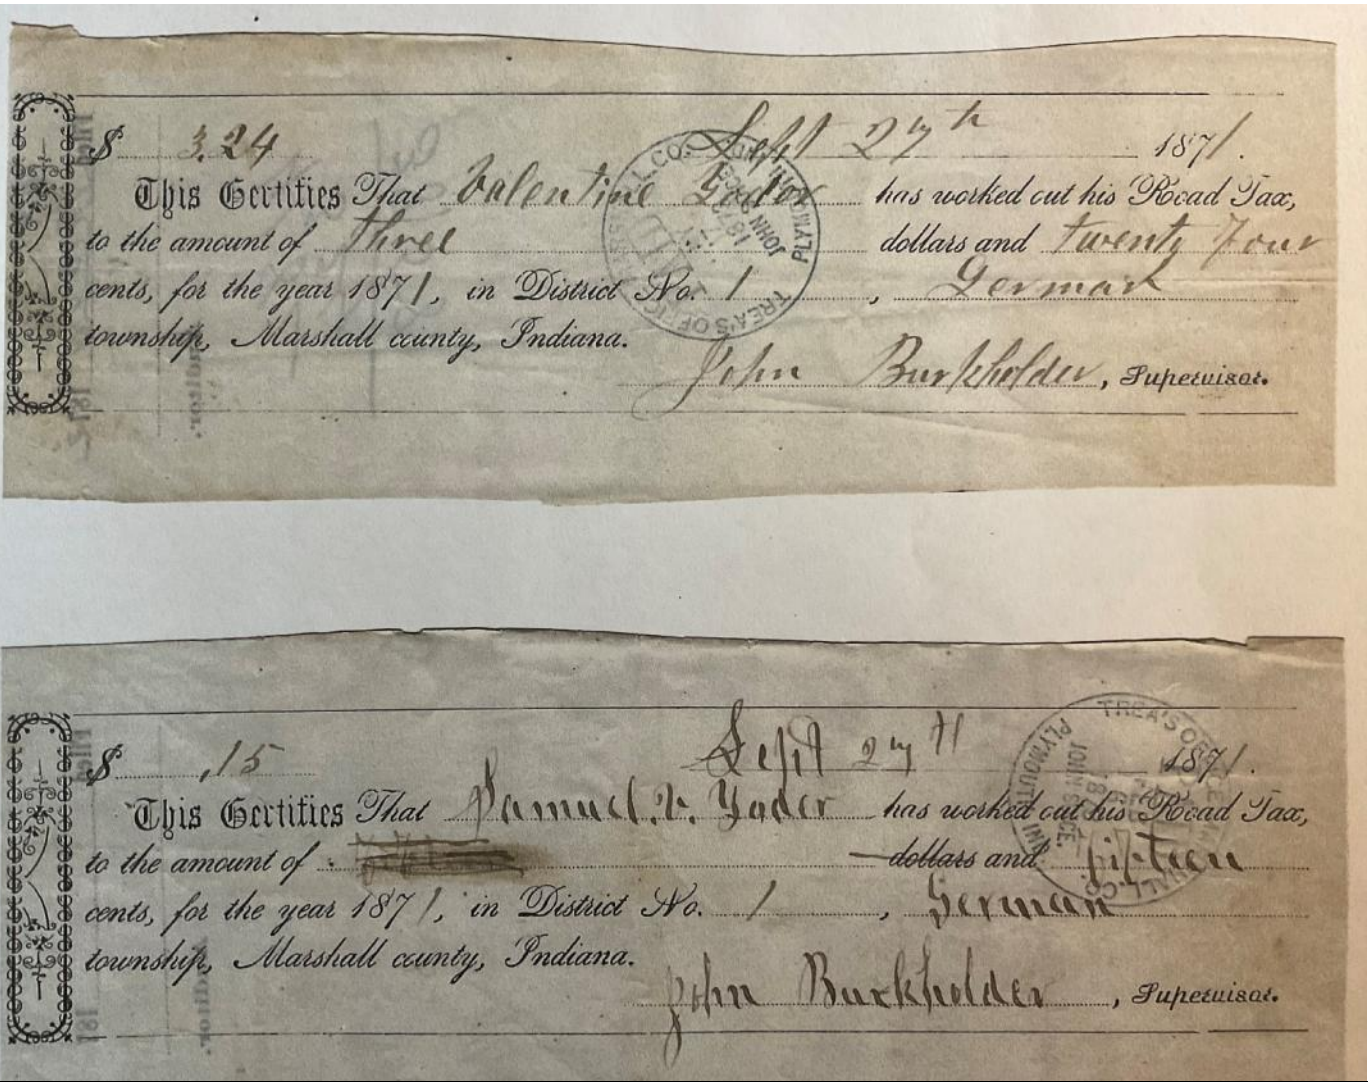 $ 3.24 Sept 27th 1871.
This Certifies That Valentine Yoder has worked out his Road Tax,
to the amount of three dollars and twenty four
cents, for the year 1871, in District No. 1, German
township, Marshall county, Indiana.
John Burkholder, Supervisor.
TREA'S OFFICE L.CO. PLYMOUTH
JOHN
Filed
Auditor.
187
$ ,15 Sept 27th 1871.
This Certifies That Samuel. V. Yoder has worked out his Road Tax,
to the amount of dollars and fifteen
cents, for the year 1871, in District No. 1, German
township, Marshall county, Indiana.
John Burkholder, Supervisor.
TREA'S OFFICE MARSHALL.CO. PLYMOUTH IND
JOHN
Filed
Auditor.
187